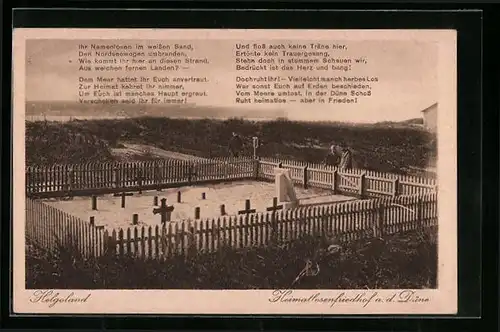 Ihr Namenlosen im weißen Sand,
Den Nordseewogen umbranden,
Wie kommt ihr hier an diesen Strand,
Aus welchen fernen Landen? —
Dem Meer hattet Ihr Euch anvertraut.
Zur Heimat kehrt ihr nimmer,
Um Euch ist manches Haupt ergraut,
Verschollen seid ihr für immer!
Und floß auch keine Träne hier,
Ertönte kein Trauergesang,
Stehe doch in stummem Schauen wir,
Bedrückt ist das Herz und bang!
Doch ruht ihr! — Vielleicht manch herbes Los
War sonst Euch auf Erden beschieden,
Vom Meere umtost, in der Düne Schoß
Ruht heimatlos — aber in Frieden!
Helgoland
Heimatlosenfriedhof a. d. Düne